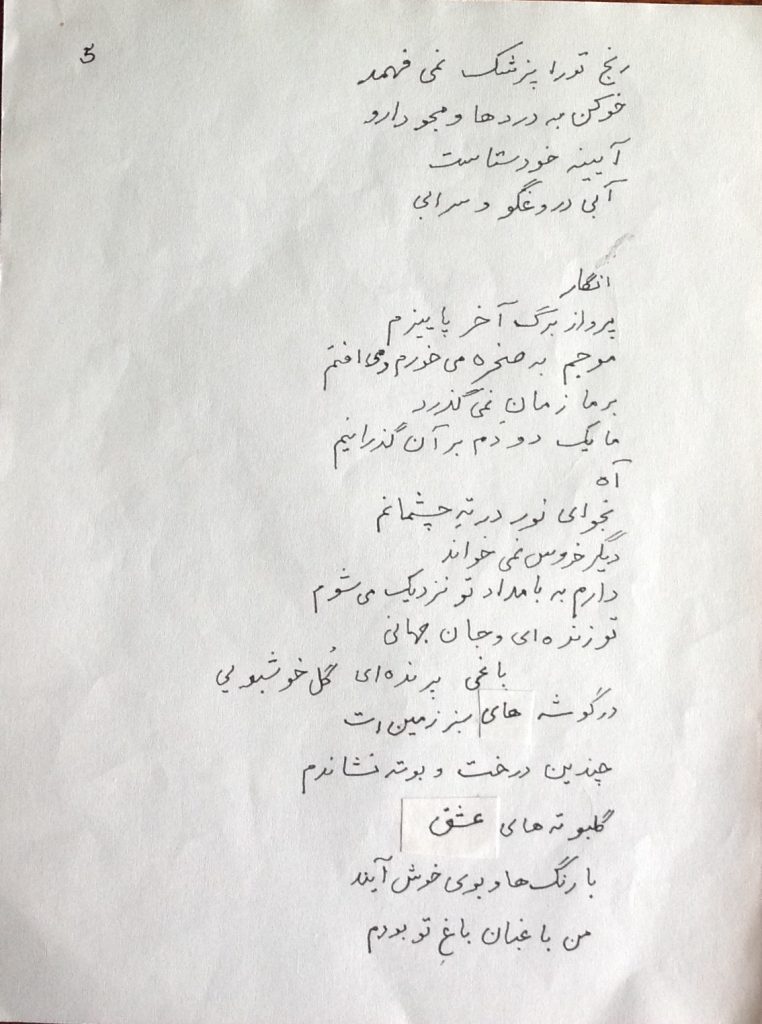 5
رنج تورا پزشک نمی فهمد
خوکن به دردها و مجو دارو
آیینه خودستاست
آبی دروغگو و سرابی
انگار
پرواز برگ آخر پاییزم
موجم به صخره می خورم ومی افتم
بر ما زمان نمی گذرد
ما یک دو دم بر آن گذرانیم
آه
نجوای نور در تهِ چشمانم
دیگر خروس نمی خواند
دارم به بامداد تو نزدیک می شوم
تو زنده ای و جان جهانی
باغی پرنده ای گُل خوشبویی
درگوشه های سبز زمین ات
چندین درخت و بوته نشاندم
گلبوته های عشق
با رنگ ها و بوی خوش آیند
من باغبان باغِ تو بودم